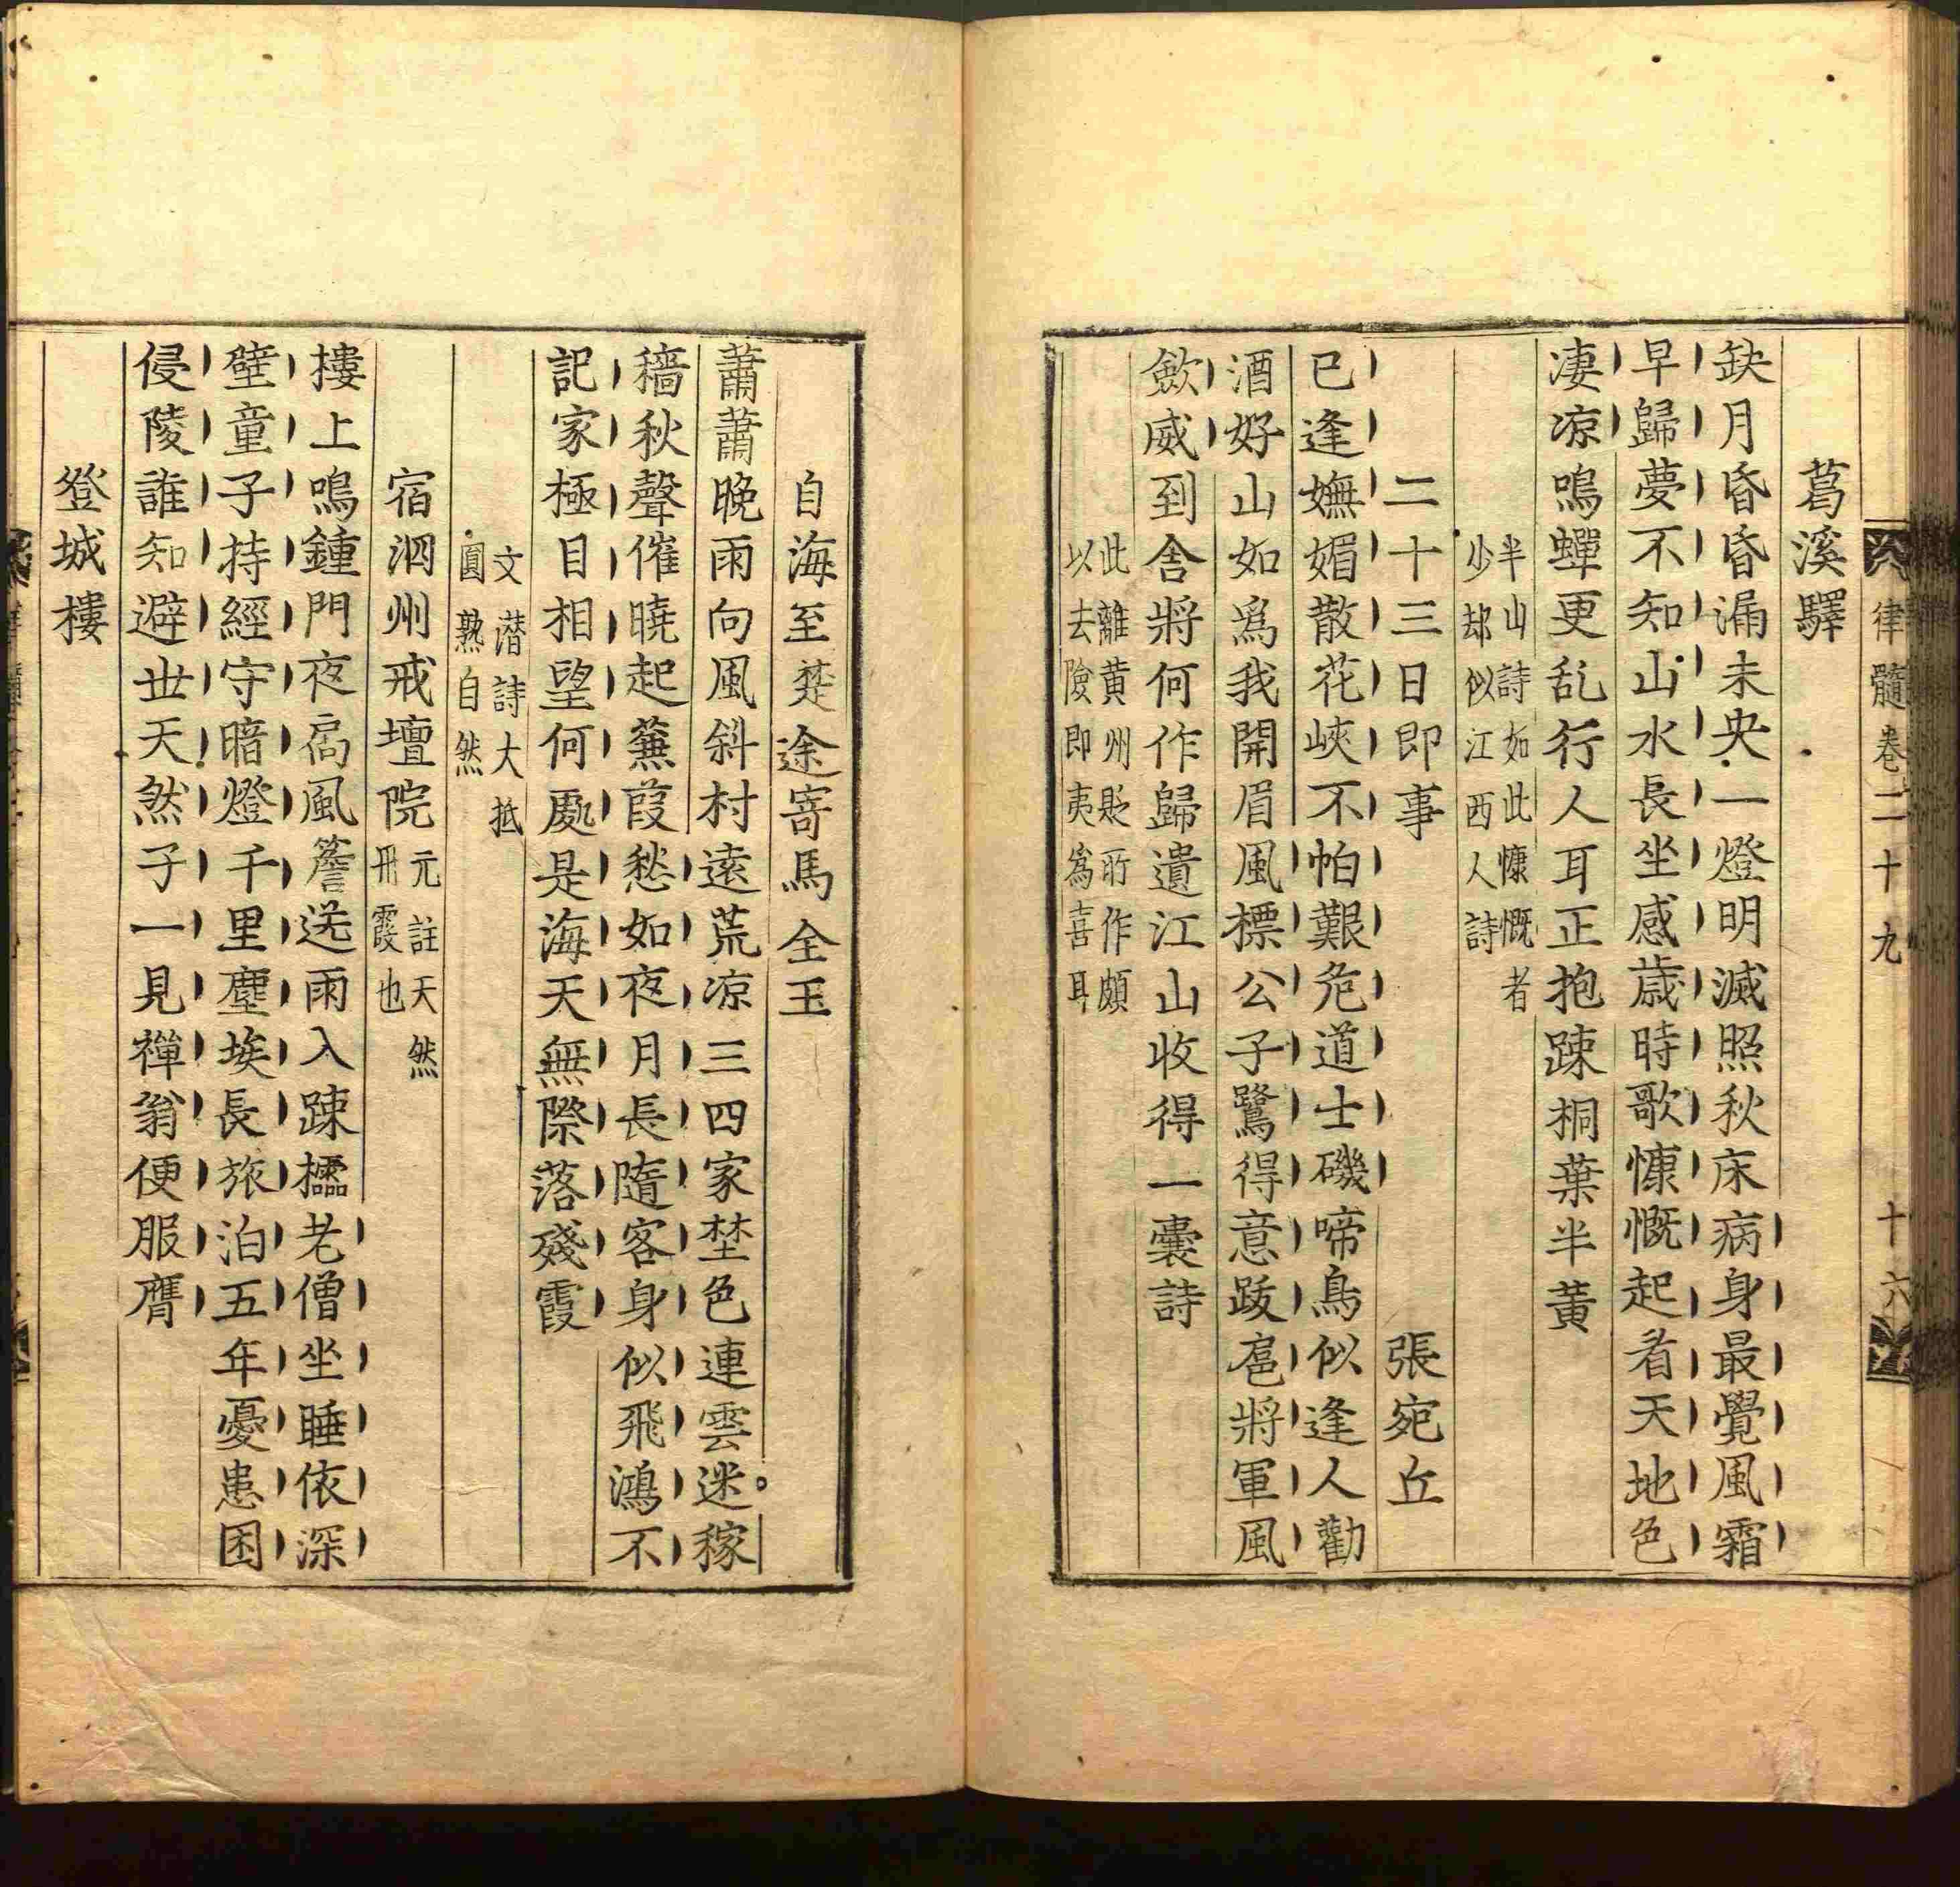 律髓卷二十九 十六
葛溪驛
缺月昏昏漏未央一燈明滅照秋床病身最覺風霜
早歸夢不知山水長坐感歳時歌慷慨起看天地色
凄凉鳴蟬更乱行人耳正抱踈桐葉半黃
半山詩如此慷慨者
少却似江西人詩
二十三日即事 張宛丘
已逢嫵媚散花峽不怕艱危道士磯啼鳥似逢人勸
酒好山如爲我開眉風標公子鷺得意跋扈將軍風
歛威到舎將何作歸遺江山收得一囊詩
此離黄州貶所作頗
以去險即夷爲喜耳
自海至楚途寄馬全玉
蕭蕭晚雨向風斜村遠荒凉三四家埜色連雲迷稼
穡秋聲催曉起蒹葭愁如夜月長隨客身似飛鴻不
記家極目相望何處是海天無際落殘霞
文潜詩大抵
圓熟自然
宿泗州戒壇院 元註天然
冊霞也
樓上鳴鍾門夜扃風簷送雨入踈櫺老僧坐睡依深
壁童子持經守暗燈千里塵埃長旅泊五年憂患困
侵陵誰知避世天然子一見禪翁便服膺
登城樓